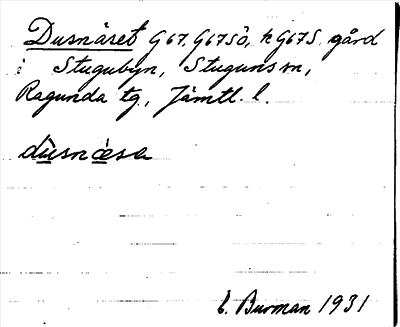 Dusnäset G67, G67SÖ, h G67S gård
i Stugubyn, Stuguns sn,
Ragunda tg, Jämtl. l.
dùsnæ̀sa
E. Burman 1931